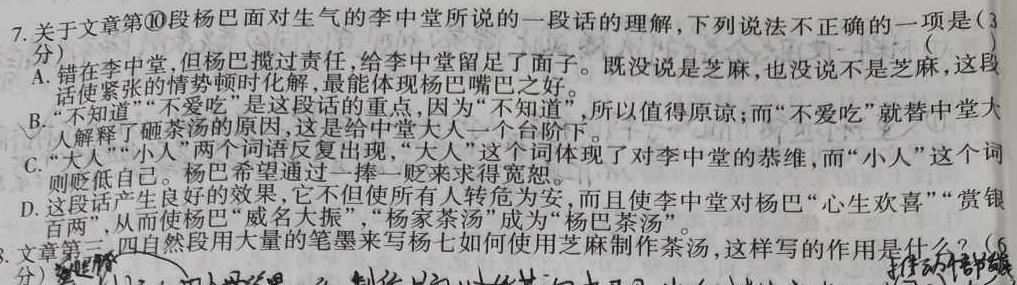 7. 关于文章第⑩段杨巴面对生气的李中堂所说的一段话的理解,下列说法不正确的一项是(3
分) ( )
A. 错在李中堂,但杨巴揽过责任,给李中堂留足了面子。既没说是芝麻,也没说不是芝麻,这段
话使紧张的情势顿时化解,最能体现杨巴嘴巴之好。
B. “不知道”“不爱吃”是这段话的重点,因为“不知道”,所以值得原谅;而“不爱吃”就替中堂大
人解释了砸茶汤的原因,这是给中堂大人一个台阶下。
C. “大人”“小人”两个词语反复出现,“大人”这个词体现了对李中堂的恭维,而“小人”这个词
则贬低自己。杨巴希望通过一捧一贬来求得宽恕。
D. 这段话产生良好的效果,它不但使所有人转危为安,而且使李中堂对杨巴“心生欢喜”“赏银
百两”,从而使杨巴“威名大振”,“杨家茶汤”成为“杨巴茶汤”。
8. 文章第三、四自然段用大量的笔墨来写杨七如何使用芝麻制作茶汤,这样写的作用是什么?(6
分)